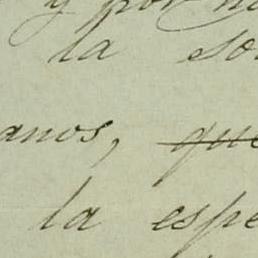 y por
la so
anos, que
la espe